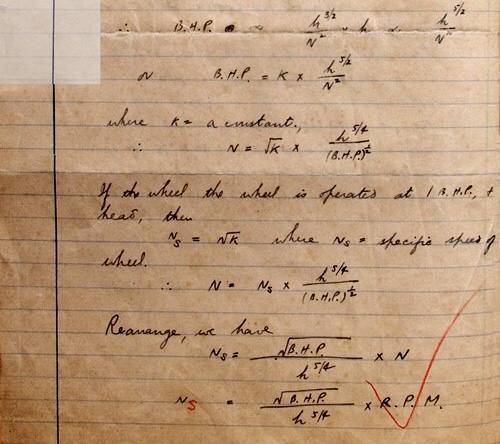 ∴ B.H.P. ∝ h^3/2 / N² × h ∝ h^5/2 / N²
or B.H.P. = K × h^5/2 / N²
where K = a constant.,
∴ N = √K × h^5/4 / (B.H.P.)^½
If the wheel the wheel is operated at 1 B.H.P., +
head, then
Ns = √K where Ns = specific speed of
wheel.
∴ N = Ns × h^5/4 / (B.H.P.)^½
Rearrange, we have
Ns = √B.H.P. / h^5/4 × N
Ns = √B.H.P. / h^5/4 × R.P.M.